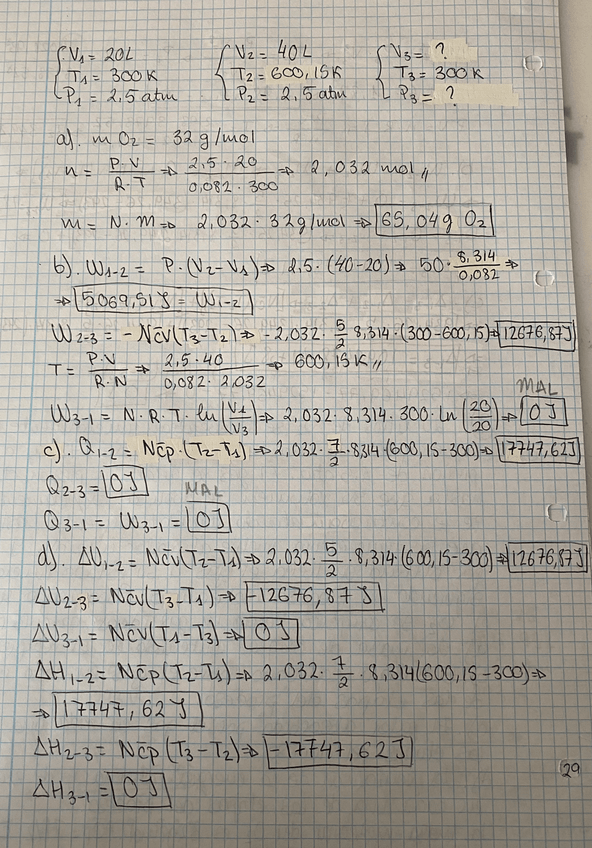 V1 = 20L V2 = 40L V3 = ?
T1 = 300K T2 = 600,15K T3 = 300K
P1 = 2,5 atm P2 = 2,5 atm P3 = ?
a). m O2 = 32 g/mol
n = P·V / R·T ⇒ 2,5·20 / 0,082·300 ⇒ 2,032 mol,,
m = N·m ⇒ 2,032·32g/mol ⇒ 65,04g O2
b). W1-2 = P·(V2-V1) ⇒ 2,5·(40-20) ⇒ 50·8,314/0,082 ⇒
⇒ 5069,51J = W1-2
W2-3 = -Nc̄v(T3-T2) ⇒ -2,032·5/2·8,314·(300-600,15) ⇒ 12676,87J
T = P·V / R·N ⇒ 2,5·40 / 0,082·2,032 ⇒ 600,15K,,
MAL
W3-1 = N·R·T·ln(V1/V3) ⇒ 2,032·8,314·300·ln(20/20) ⇒ 0J
c). Q1-2 = Nc̄p·(T2-T1) ⇒ 2,032·7/2·8,314·(600,15-300) ⇒ 17747,62J
Q2-3 = 0J MAL
Q3-1 = W3-1 = 0J
d). ΔU1-2 = Nc̄v(T2-T1) ⇒ 2,032·5/2·8,314·(600,15-300) ⇒ 12676,87J
ΔU2-3 = Nc̄v(T3-T1) ⇒ -12676,87J
ΔU3-1 = Nc̄v(T1-T3) ⇒ 0J
ΔH1-2 = Nc̄p(T2-T1) ⇒ 2,032·7/2·8,314(600,15-300) ⇒
⇒ 17747,62J
ΔH2-3 = Nc̄p(T3-T2) ⇒ -17747,62J
29
ΔH3-1 = 0J